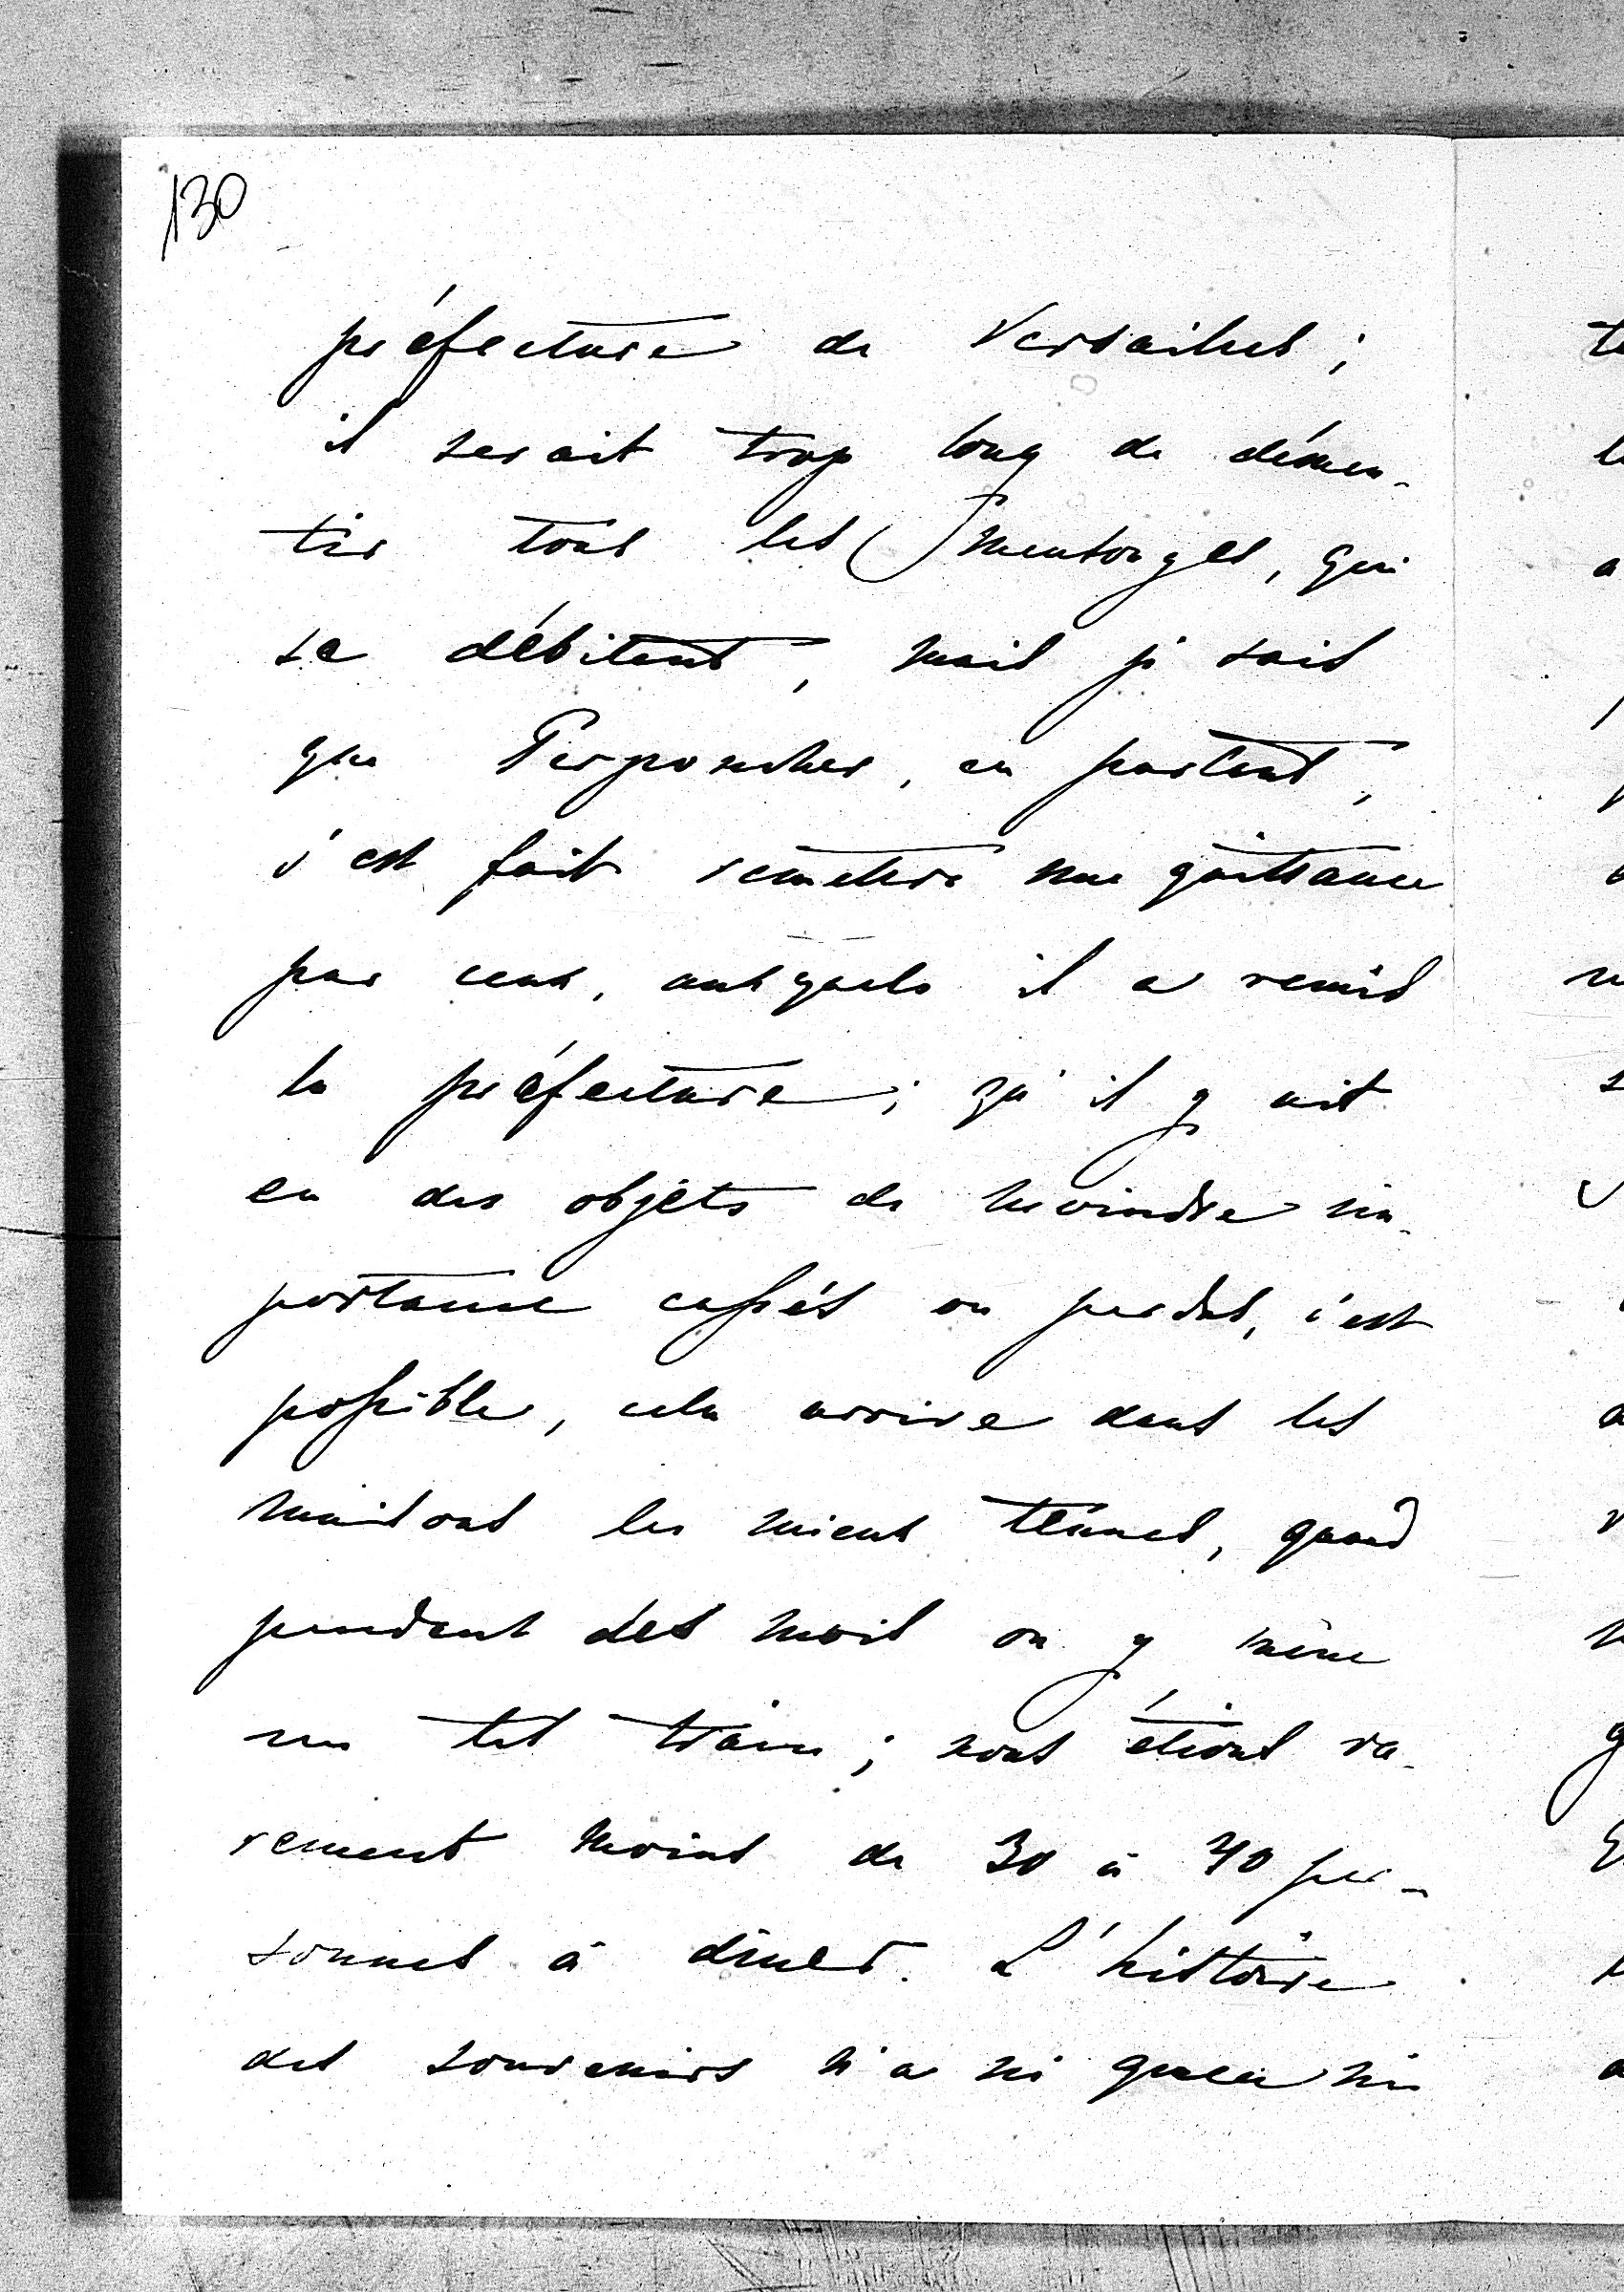 130
préfecture de Versailles ;
il serait trop long de démen-
tir tous les mensonges, qui
se débitent, mais je sais
que Perponcher, en partant,
s'est fait remettre une quittance
par ceux, auxquels il a remis
la préfecture ; qu'il y ait
eu des objets de moindre im-
portance cassés ou perdus, c'est
possible, cela arrive dans les
maisons les mieux tenues, quand
pendant des mois on y mène
un tel train ; nous étions ra-
rement moins de 30 à 40 per-
sonnes à dîner. L'histoire
des souvenirs n'a ni queue ni